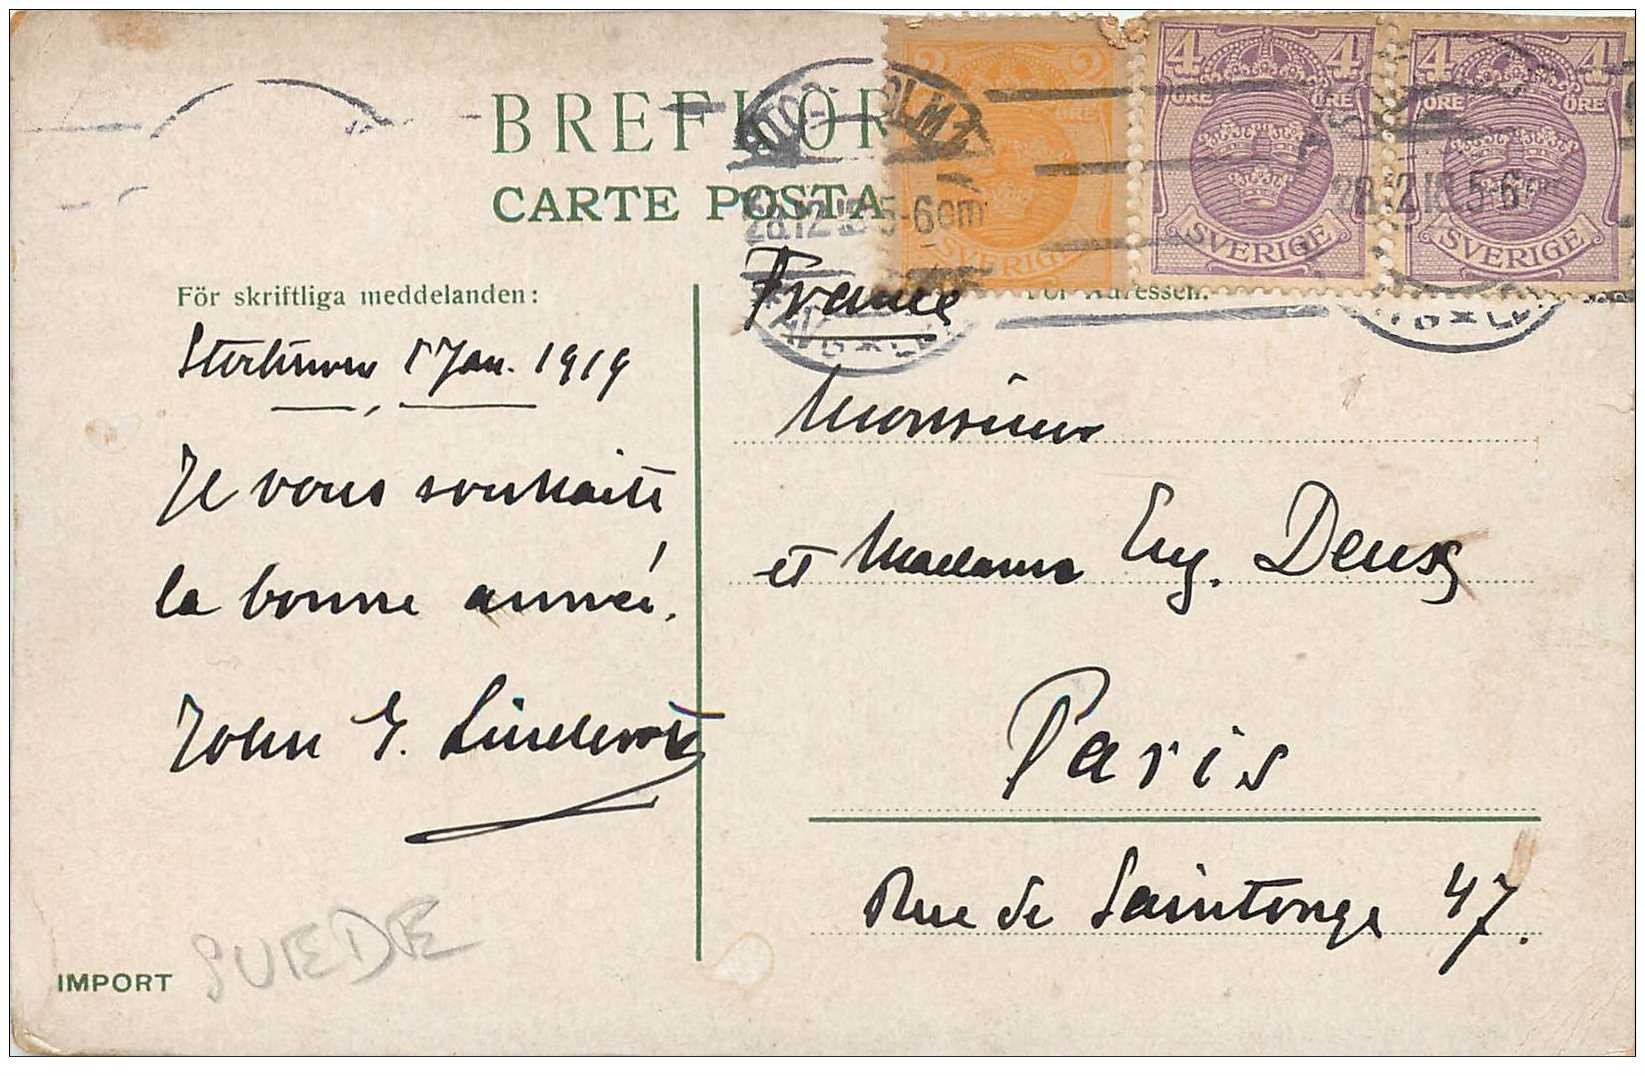 BREFKOR
CARTE POSTA
2 2
ÖRE
SVERIGE
4 4
ÖRE ÖRE
SVERIGE
4 4
ÖRE ÖRE
SVERIGE
28.12.18. 5-6 em
28.12.18. 5-6 em
För skriftliga meddelanden:
För Adressen.
France
1 Jan. 1919
Je vous souhaite
la bonne année.
John
Monsieur
et Madame Eug. Deux
Paris
Rue de Saintonge 47.
IMPORT
SUEDE